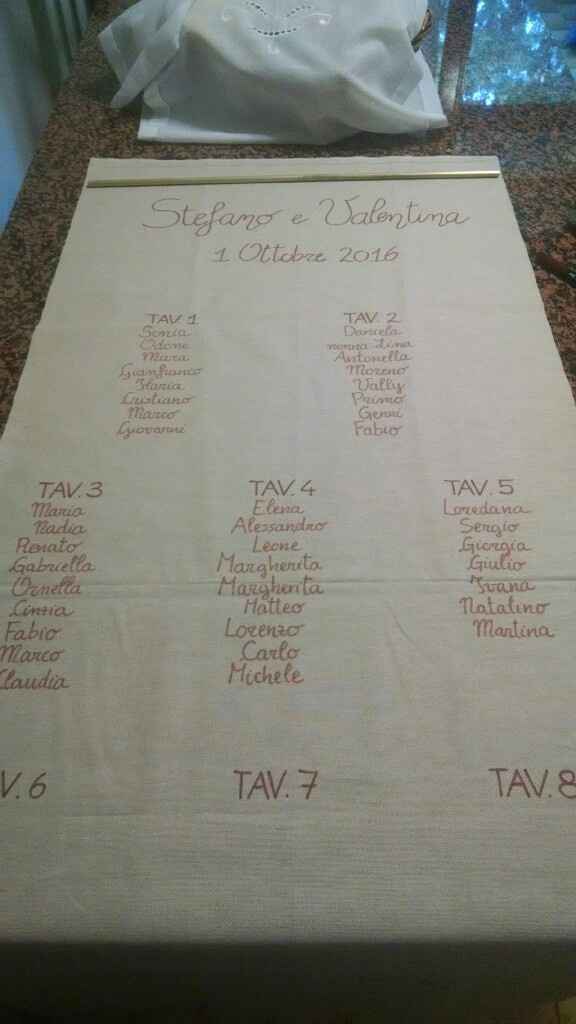 Stefano e Valentina
1 Ottobre 2016
TAV. 1
Sonia
Odone
Mara
Gianfranco
Ilaria
Cristiano
Marco
Giovanni
TAV. 2
Daniela
nonna Lina
Antonella
Moreno
Vally
Primo
Genni
Fabio
TAV. 3
Maria
Nadia
Renato
Gabriella
Ornella
Cinzia
Fabio
Marco
Claudia
TAV. 4
Elena
Alessandro
Leone
Margherita
Margherita
Matteo
Lorenzo
Carlo
Michele
TAV. 5
Loredana
Sergio
Giorgia
Giulio
Ivana
Natalino
Martina
V. 6
TAV. 7
TAV. 8